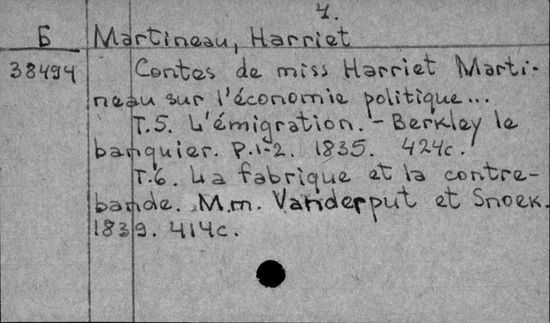 4.
Б Martineau, Harriet
38494 Contes de miss Harriet Marti-
neau sur l'économie politique...
T.5. L'émigration. - Berkley le
banquier. P.1-2. 1835. 424c.
T.6. La fabrique et la contre-
bande. M.m. Vanderput et Snoek.
1839. 414c.